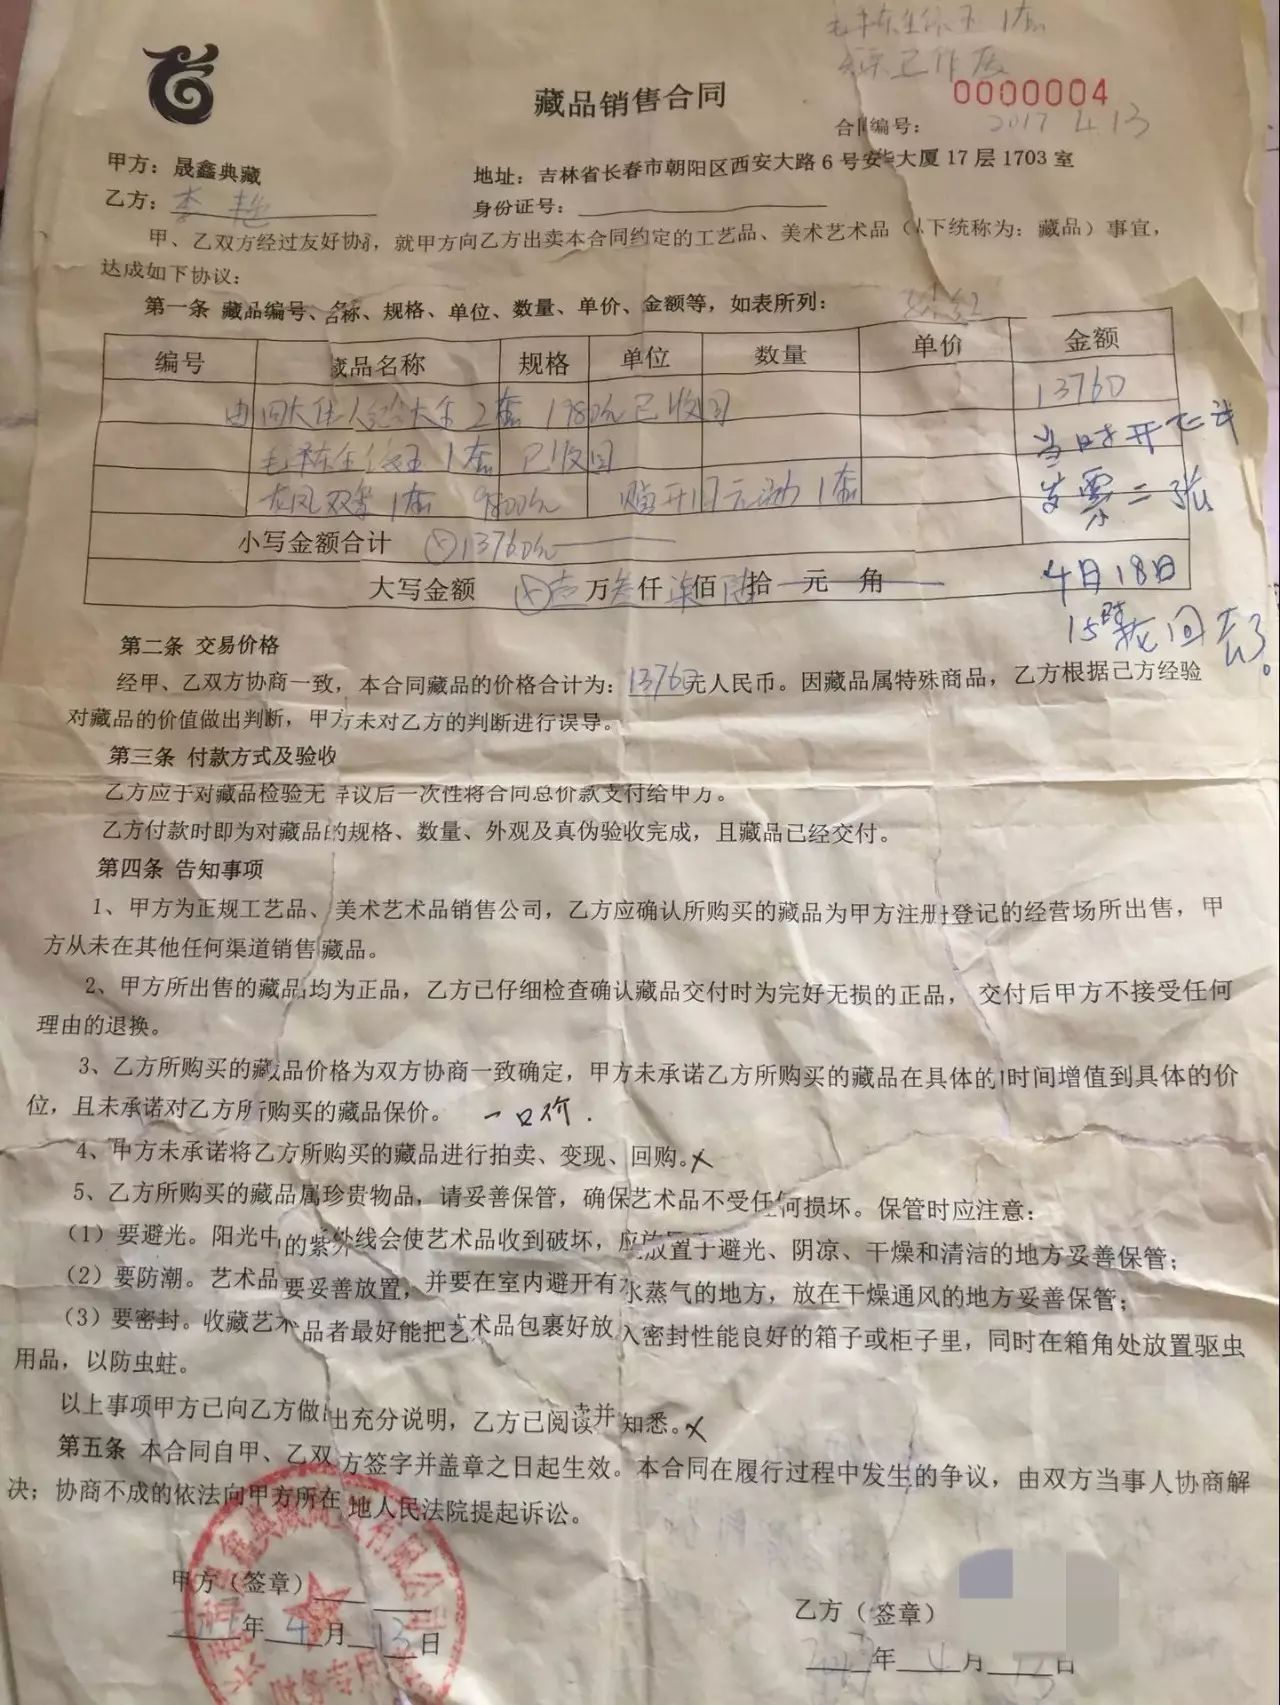 毛泽东生 玉 1套
工作
藏品销售合同
0000004
合同编号：
2017 4.13
甲方：晟鑫典藏
地址：吉林省长春市朝阳区西安大路6号安华大厦17层1703室
乙方：李艳
身份证号：
甲、乙双方经过友好协商，就甲方向乙方出卖本合同约定的工艺品、美术艺术品（以下统称为：藏品）事宜，
达成如下协议：
第一条 藏品编号、名称、规格、单位、数量、单价、金额等，如表所列：
编号 藏品名称 规格 单位 数量 单价 金额
大伟人纪念大全 2套 1980元 已收回
13760
毛泽东生 玉 1套 已收回
当时开
龙凤双 1套 9800元 赠开门元 1套
发票二张
小写金额合计 13760元
大写金额 壹万叁仟柒佰陆拾元角
4日18日
15时 回去了。
第二条 交易价格
经甲、乙双方协商一致，本合同藏品的价格合计为：13760元人民币。因藏品属特殊商品，乙方根据己方经验
对藏品的价值做出判断，甲方未对乙方的判断进行误导。
第三条 付款方式及验收
乙方应于对藏品检验无异议后一次性将合同总价款支付给甲方。
乙方付款时即为对藏品的规格、数量、外观及真伪验收完成，且藏品已经交付。
第四条 告知事项
1、甲方为正规工艺品、美术艺术品销售公司，乙方应确认所购买的藏品为甲方注册登记的经营场所出售，甲
方从未在其他任何渠道销售藏品。
2、甲方所出售的藏品均为正品，乙方已仔细检查确认藏品交付时为完好无损的正品，交付后甲方不接受任何
理由的退换。
3、乙方所购买的藏品价格为双方协商一致确定，甲方未承诺乙方所购买的藏品在具体的时间增值到具体的价
位，且未承诺对乙方所购买的藏品保价。 一口价.
4、甲方未承诺将乙方所购买的藏品进行拍卖、变现、回购。X
5、乙方所购买的藏品属珍贵物品，请妥善保管，确保艺术品不受任何损坏。保管时应注意：
（1）要避光。阳光中的紫外线会使艺术品收到破坏，应放置于避光、阴凉、干燥和清洁的地方妥善保管；
（2）要防潮。艺术品要妥善放置，并要在室内避开有水蒸气的地方，放在干燥通风的地方妥善保管；
（3）要密封。收藏艺术品者最好能把艺术品包裹好放入密封性能良好的箱子或柜子里，同时在箱角处放置驱虫
用品，以防虫蛀。
以上事项甲方已向乙方做出充分说明，乙方已阅读并知悉。X
第五条 本合同自甲、乙双方签字并盖章之日起生效。本合同在履行过程中发生的争议，由双方当事人协商解
决；协商不成的依法向甲方所在地人民法院提起诉讼。
鑫典藏 有限公司
财务专用
甲方（签章）
2017年4月13日
乙方（签章）
2017年4月13日